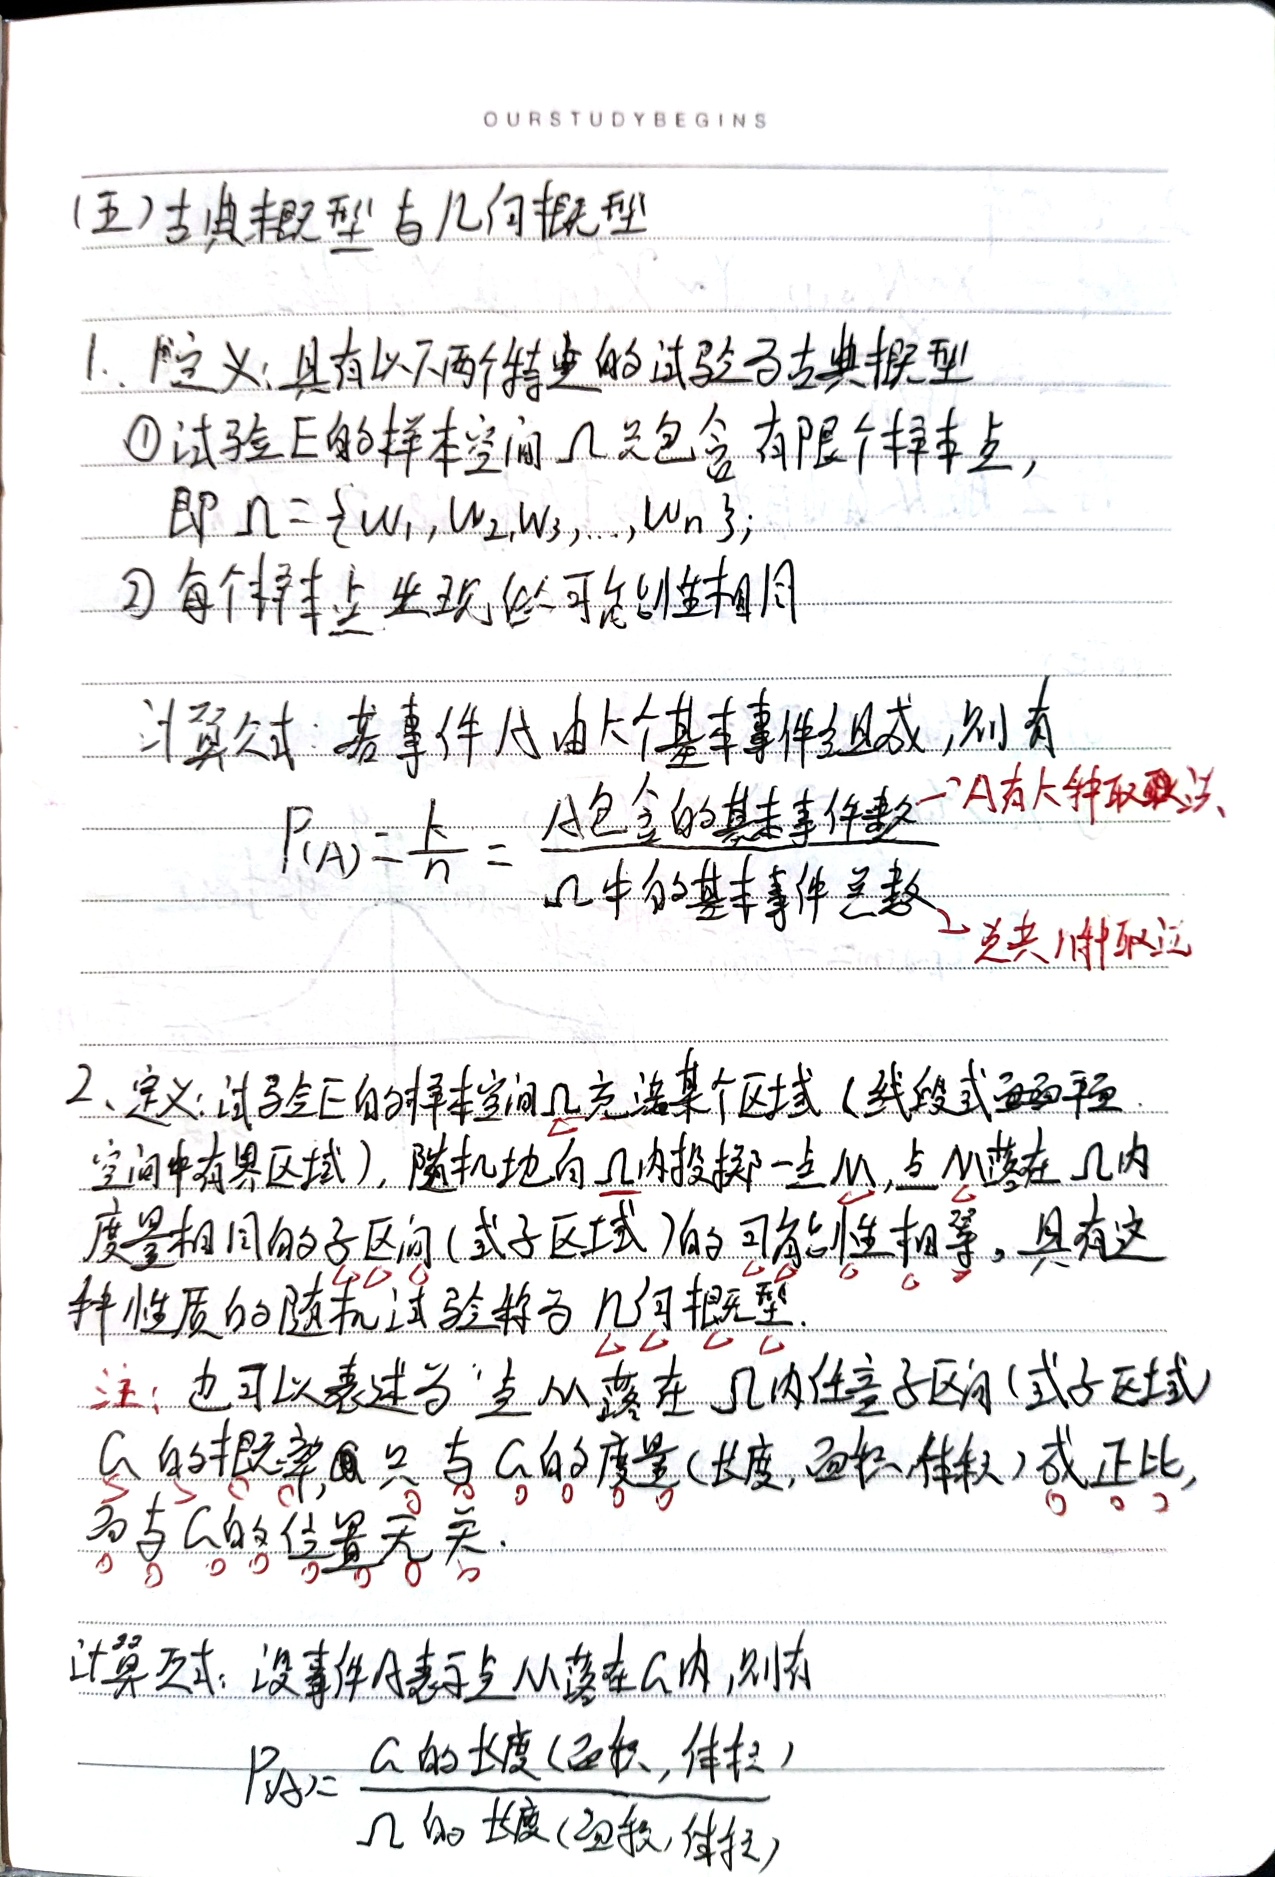 OURSTUDYBEGINS
(五)古典概型与几何概型
1. 定义:具有以下两个特点的试验为古典概型
①试验E的样本空间Ω只包含有限个样本点,
即Ω={w₁,w₂,w₃,...,wn};
② 每个样本点出现的可能性相同
计算公式:若事件A由k个基本事件组成,则有
P(A)=k/n=A包含的基本事件数/Ω中的基本事件总数
→A有k种取法
→总共n种取法
2、定义:试验E的样本空间Ω充满某个区域(线段或平面
空间中有界区域),随机地向Ω内投掷一点M,点M落在Ω内
度量相同的子区间(或子区域)的可能性相等。具有这
种性质的随机试验称为几何概型.
注:也可以表述为:点M落在Ω内任意子区间(或子区域)
G的概率,只与G的度量(长度,面积,体积)成正比,
而与G的位置无关.
计算公式:设事件A表示点M落在G内,则有
P(A)=G的长度(面积,体积)/Ω的长度(面积,体积)